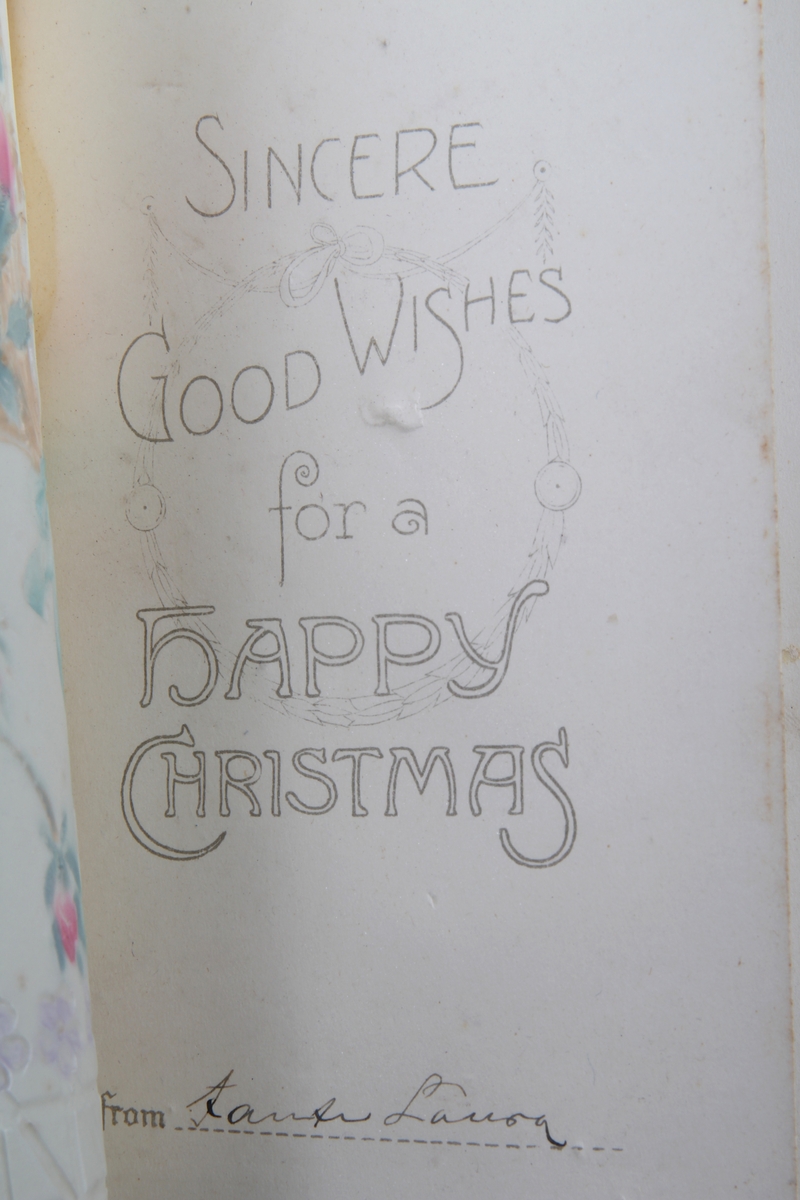 SINCERE
GOOD WISHES
for a
HAPPY
CHRISTMAS
from Tante Laura